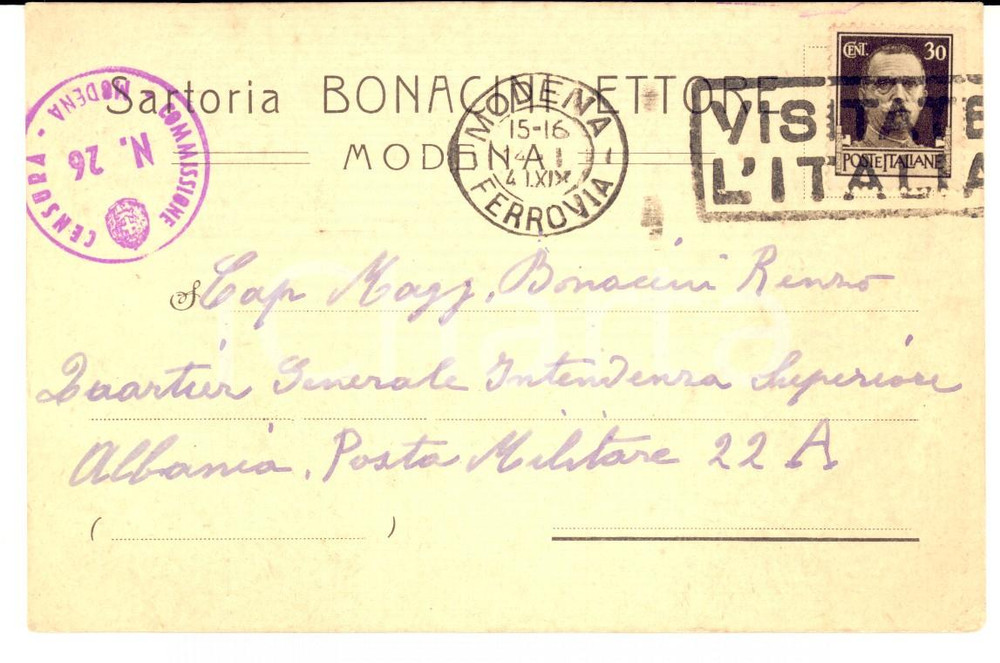 Sartoria BONACINI ETTORE
MODENA
COMMISSIONE CENSURA - MODENA
N. 26
MODENA
15-16
4 1
41 XIX
FERROVIA
VISITATE
L'ITALIA
CENT. 30
POSTE ITALIANE
S Cap Magg. Bonacini Renzo
Quartier Generale Intendenza Superiore
Albania. Posta Militare 22 A
( )